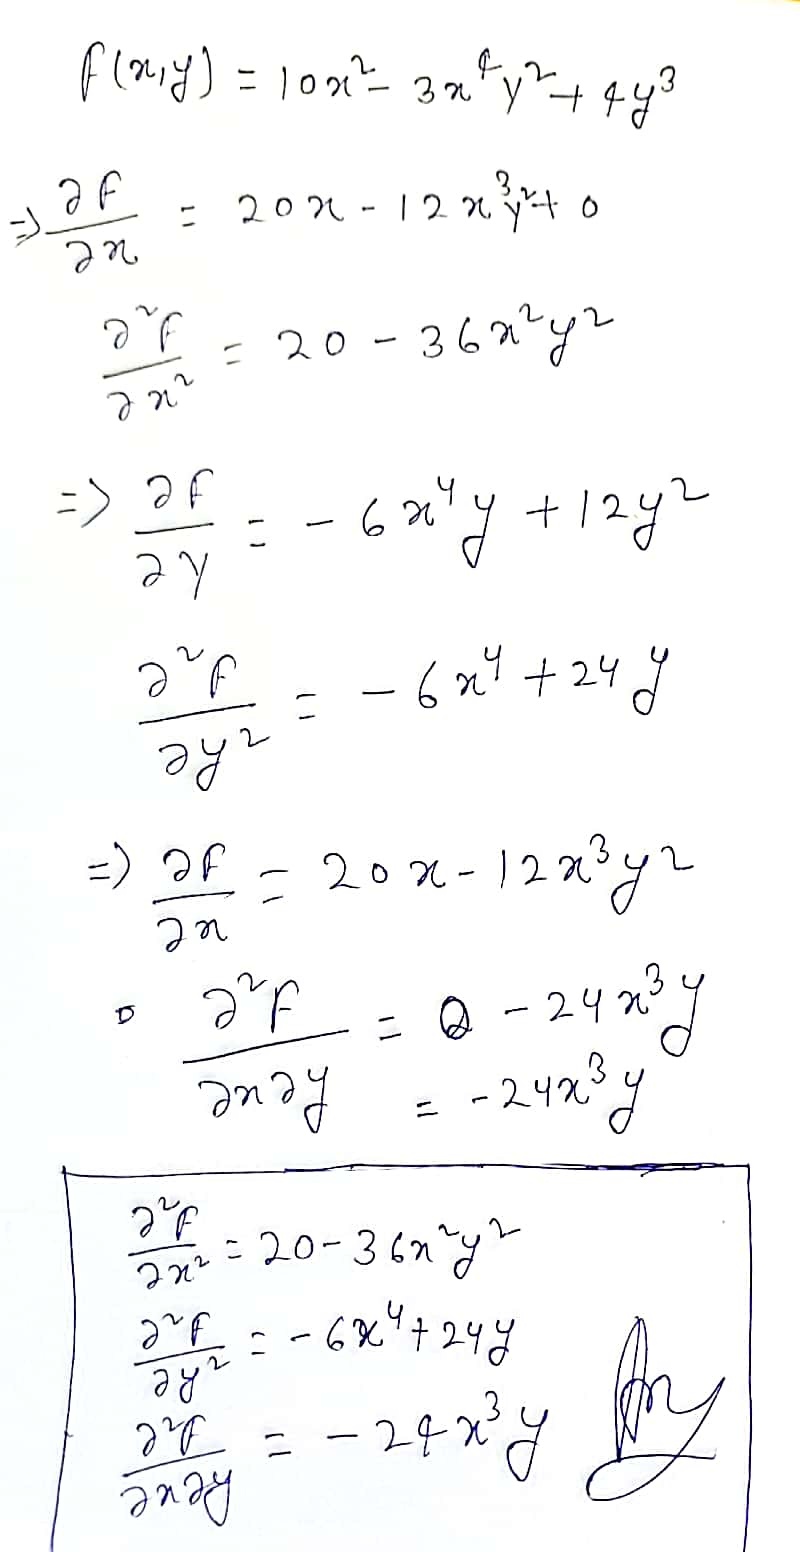 f(x,y) = 10x² - 3x⁴y² + 4y³
⇒ ∂f/∂x = 20x - 12x³y² + 0
∂²f/∂x² = 20 - 36x²y²
⇒ ∂f/∂y = -6x⁴y + 12y²
∂²f/∂y² = -6x⁴ + 24y
⇒ ∂f/∂x = 20x - 12x³y²
∂²f/∂x∂y = 0 - 24x³y
= -24x³y
∂²f/∂x² = 20 - 36x²y²
∂²f/∂y² = -6x⁴ + 24y
∂²f/∂x∂y = -24x³y